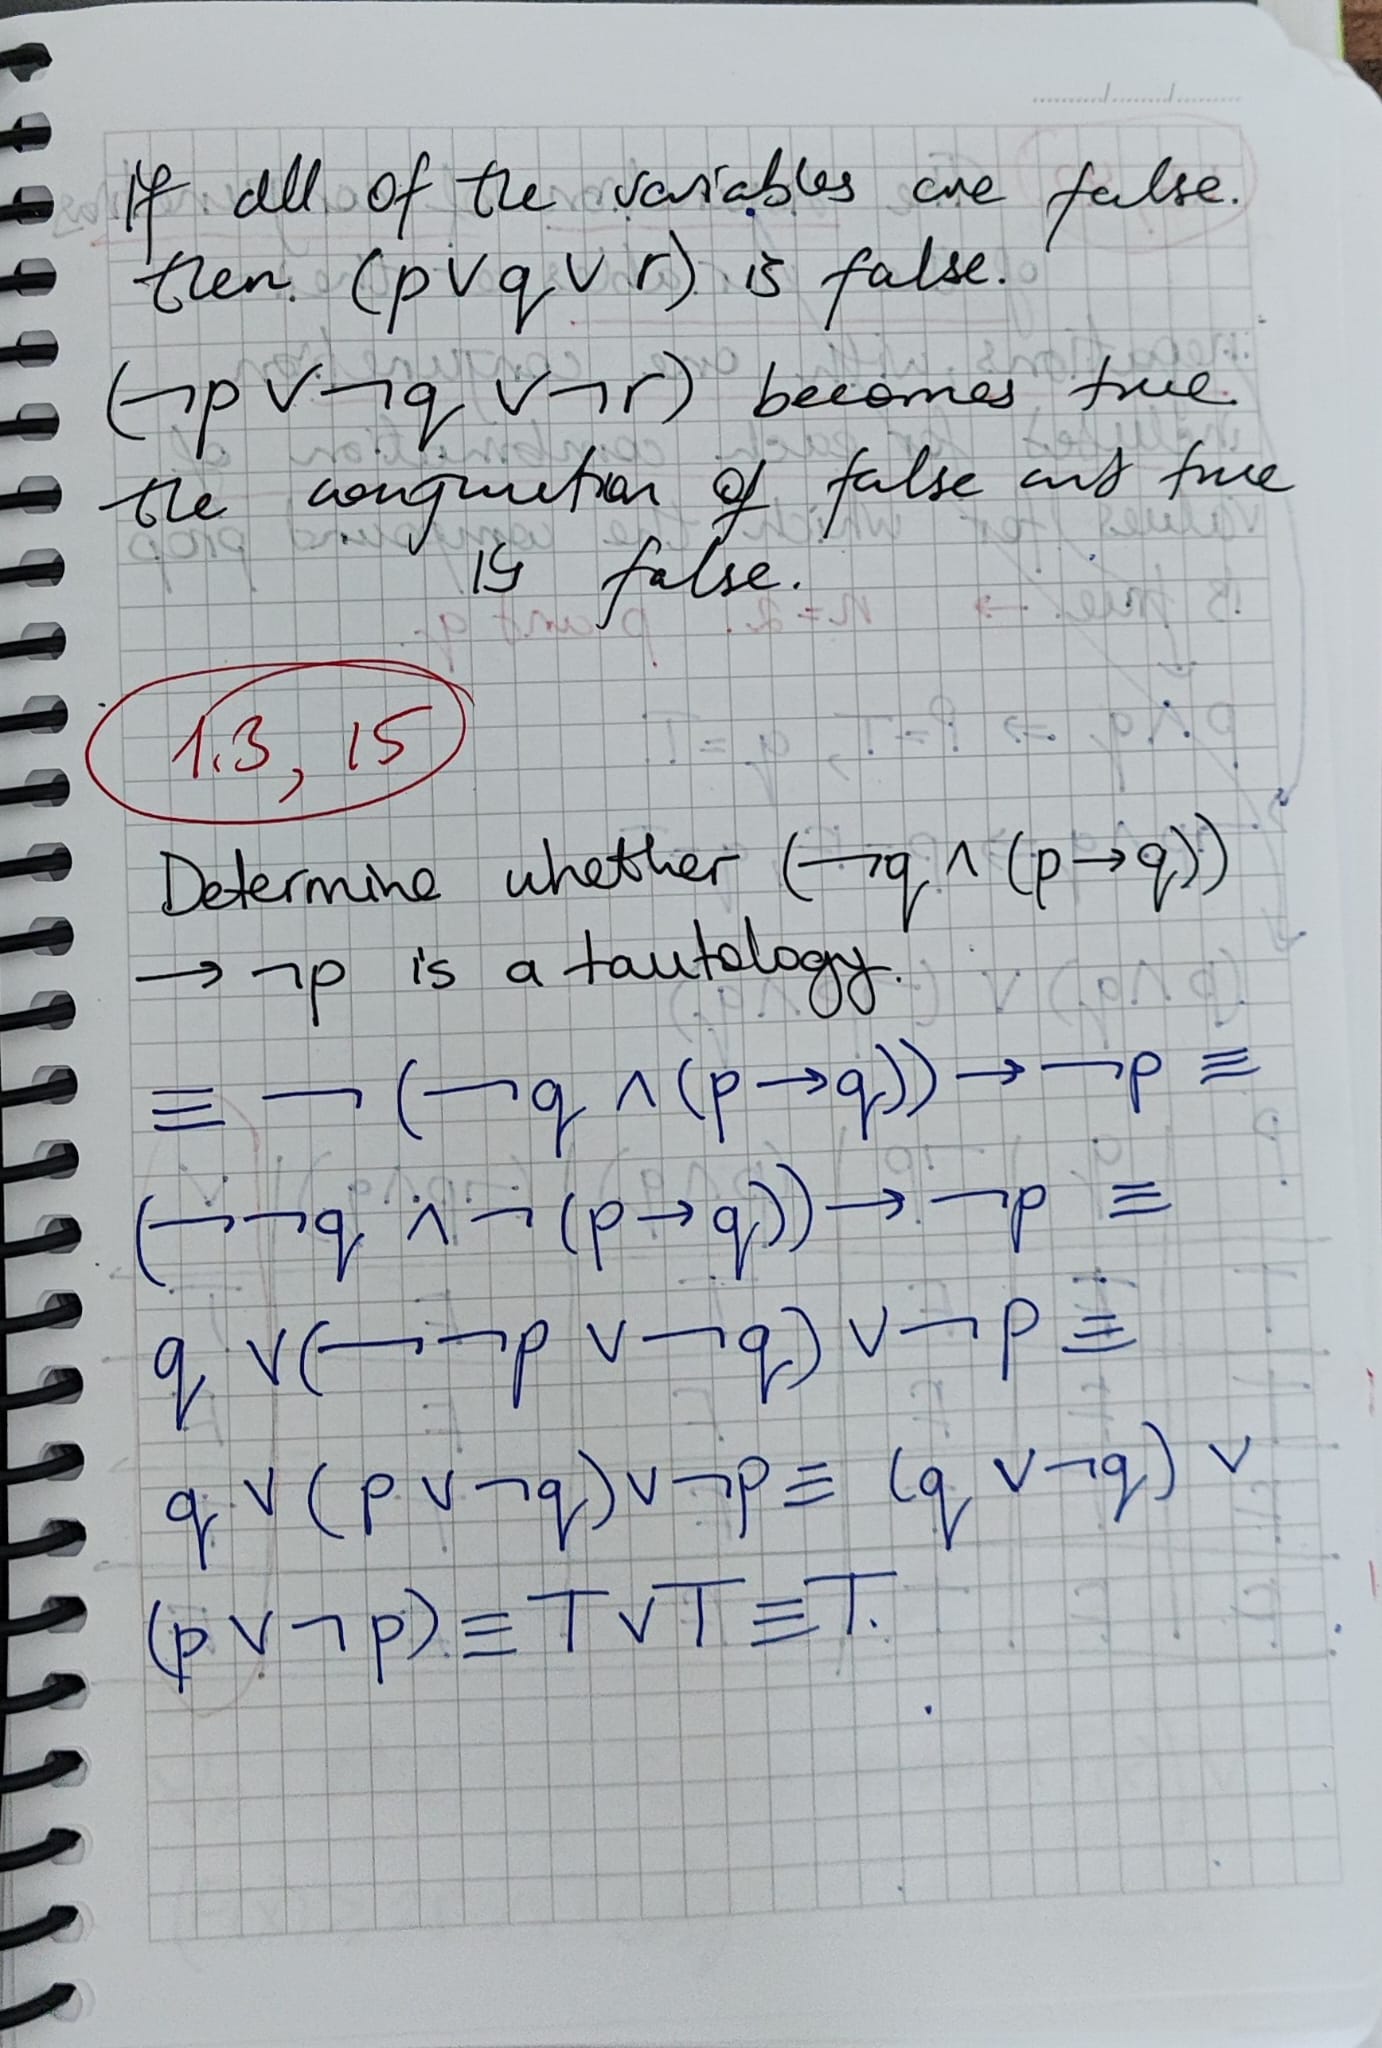 If all of the variables are false.
then. (p ∨ q ∨ r) is false.
(¬p ∨ ¬q ∨ ¬r) becomes true
the conjunction of false and true
is false.
1.3, 15
Determine whether (¬q ∧ (p → q))
→ ¬p is a tautology.
≡ ¬(¬q ∧ (p → q)) → ¬p ≡
(¬¬q ∧ ¬(p → q)) → ¬p ≡
q ∨ (¬¬p ∨ ¬q) ∨ ¬p ≡
q ∨ (p ∨ ¬q) ∨ ¬p ≡ (q ∨ ¬q) ∨
(p ∨ ¬p) ≡ T ∨ T ≡ T.